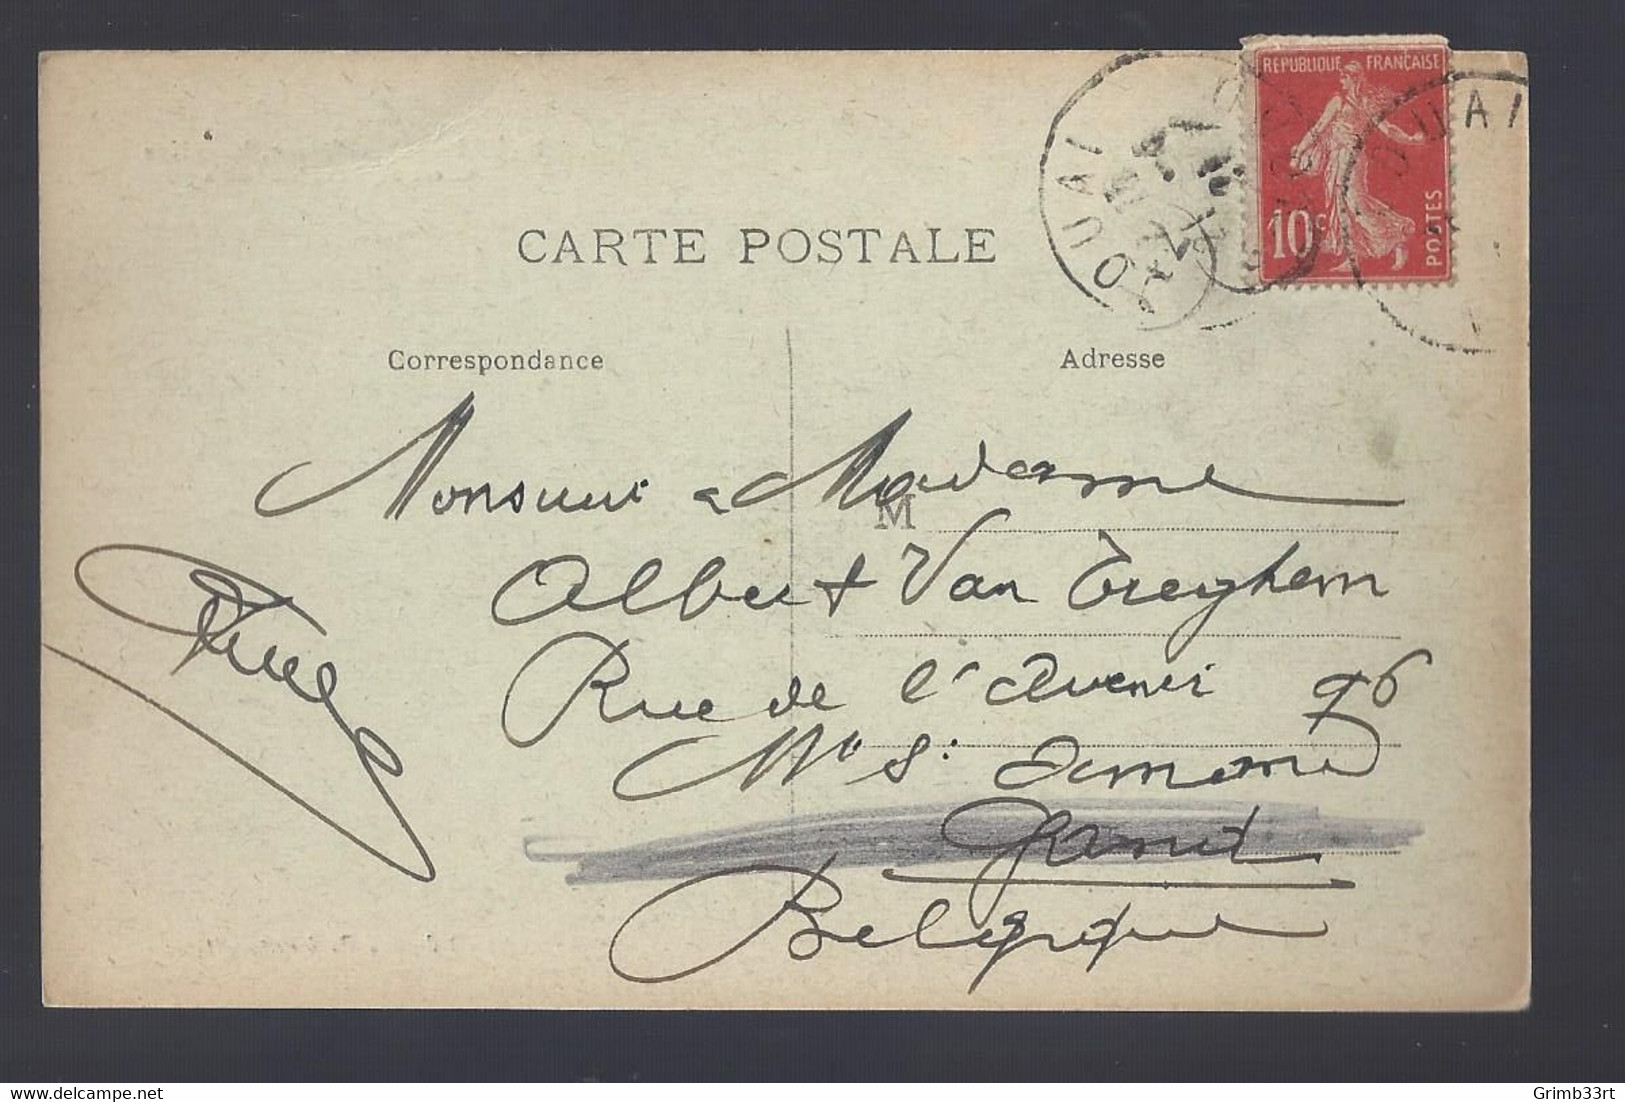 REPUBLIQUE FRANÇAISE
10c
POSTES
DOUAI
DOUAI
CARTE POSTALE
Correspondance
Adresse
Monsieur & Madame
M
Albert Van Treyhem
Rue de l'Avenir 96
Mt St Amand
Gand
Belgique
Grimb33rt